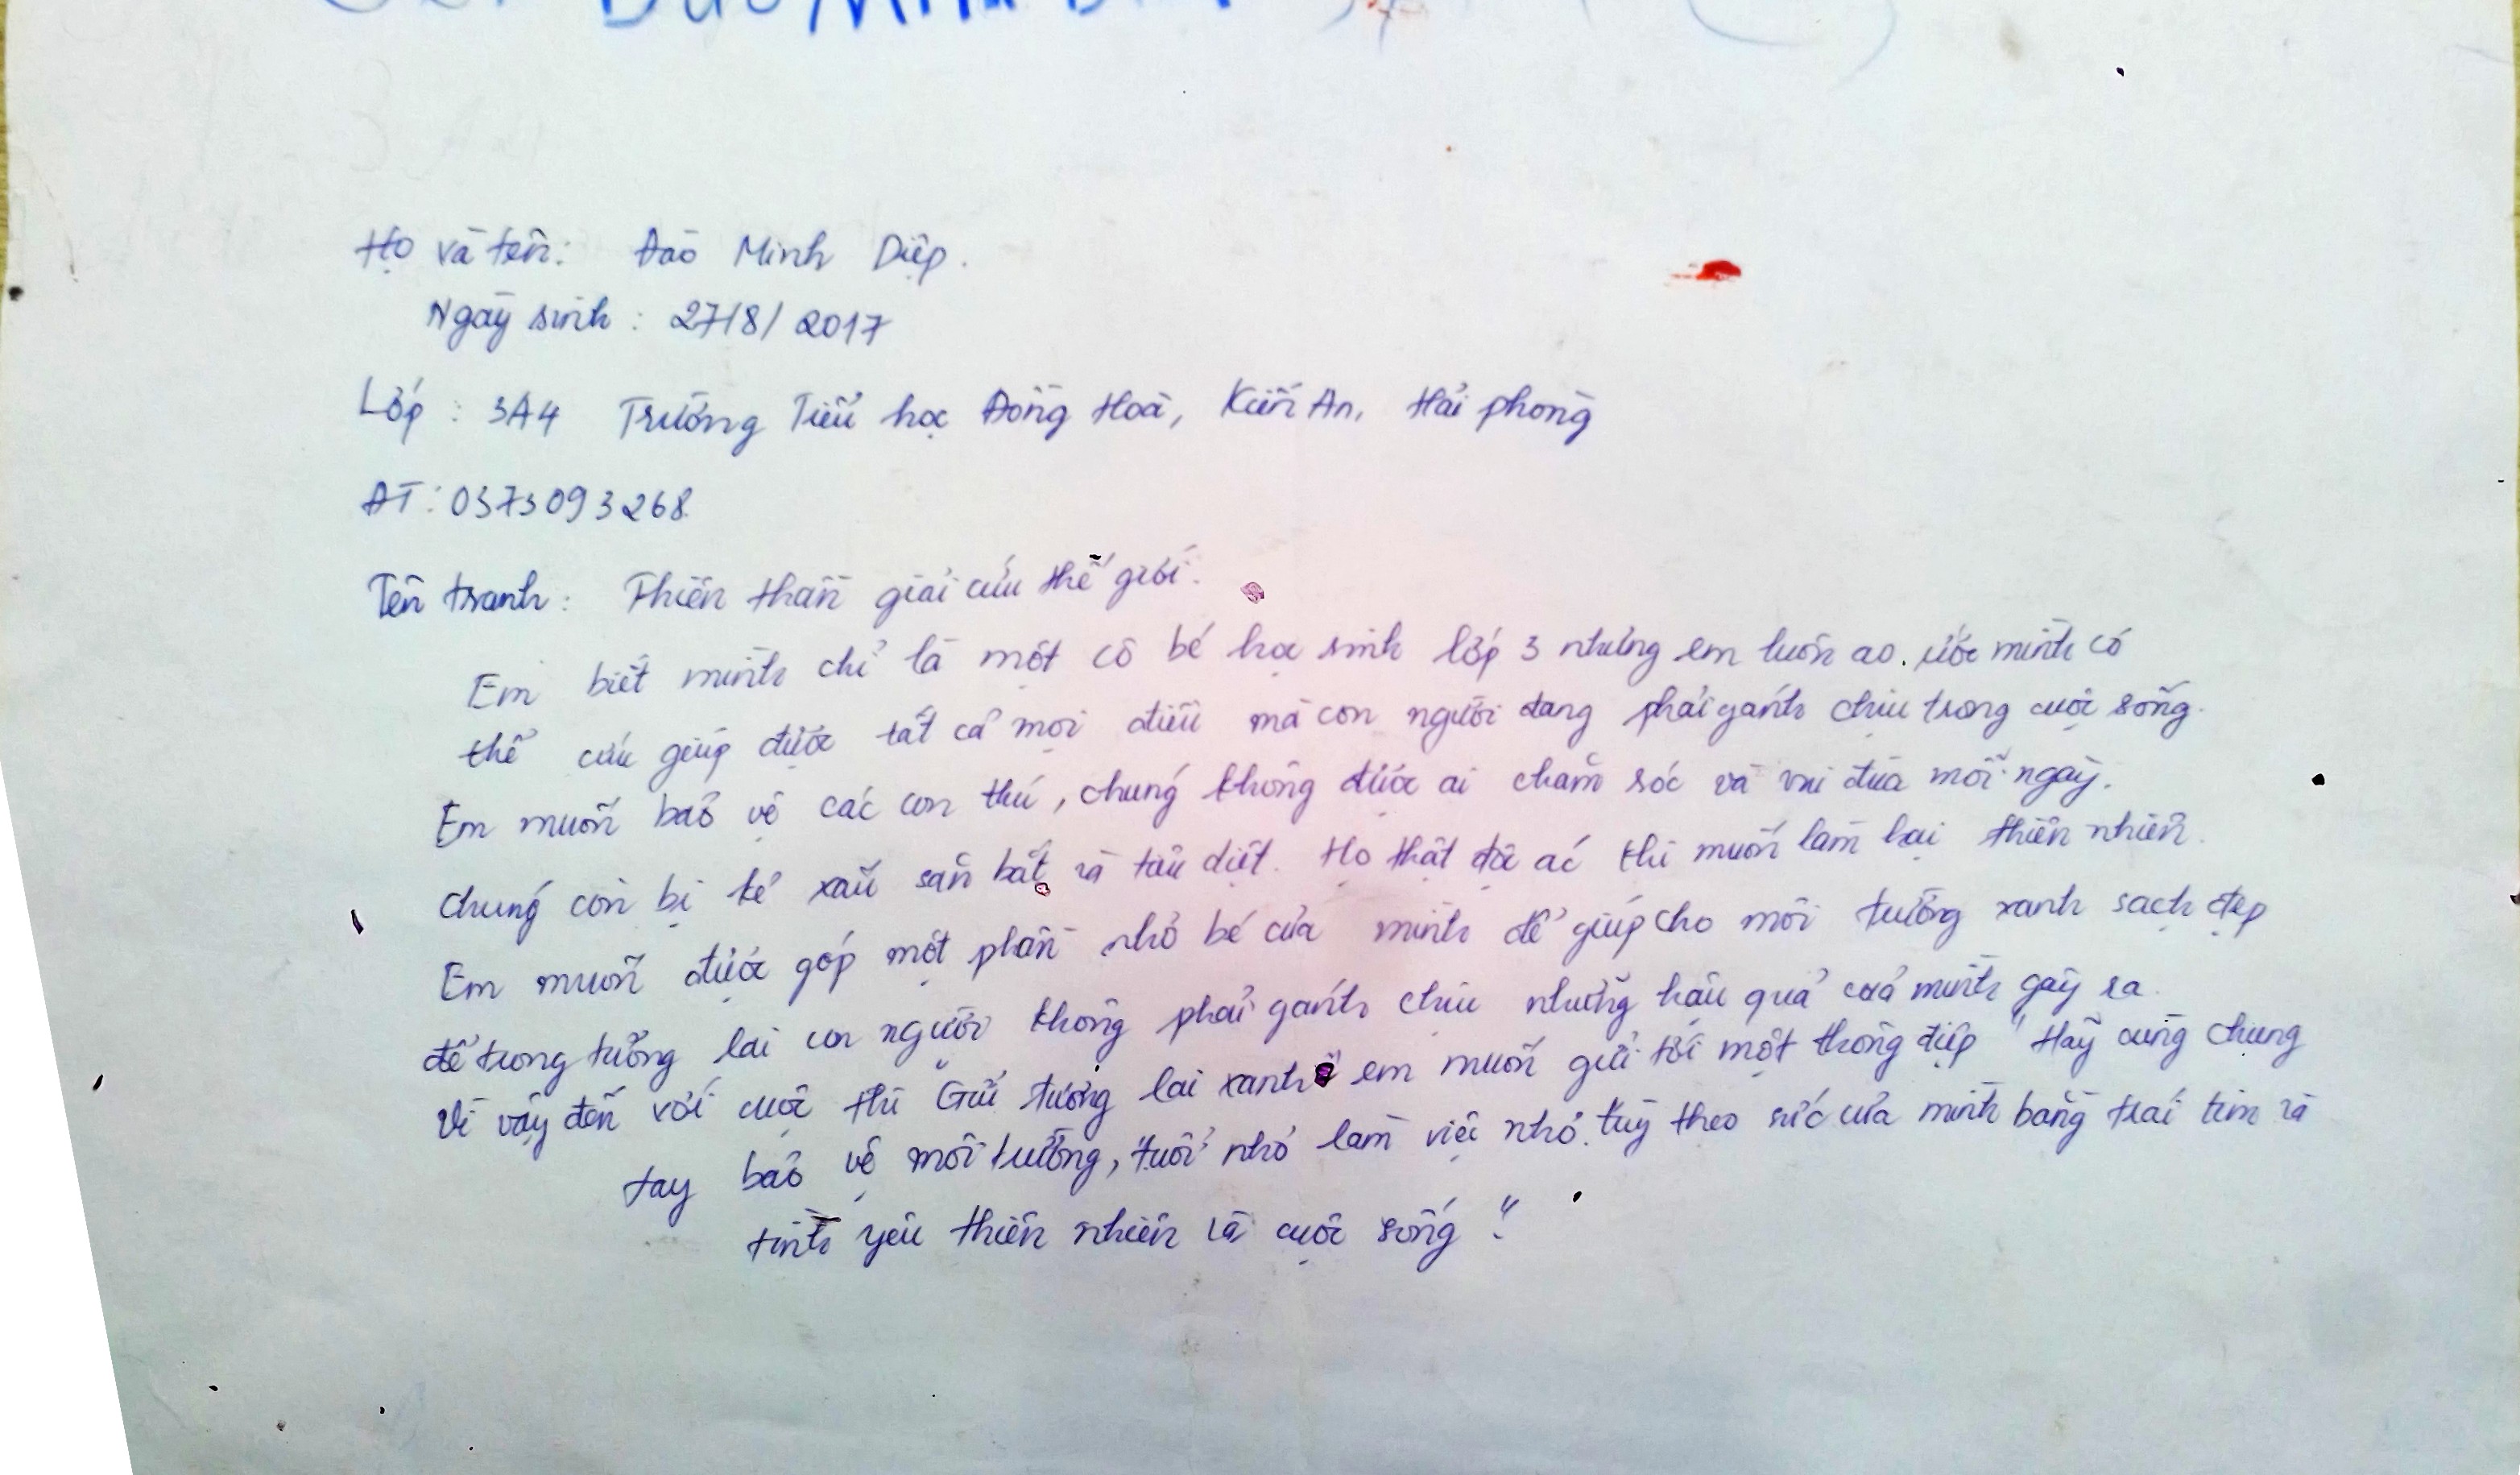 Họ và tên: Đào Minh Diệp.
Ngày sinh: 27/8/2017
Lớp: 3A4 Trường Tiểu học Đồng Hoà, Kiến An, Hải phòng
ĐT: 0373093268
Tên tranh: Thiên thần giải cứu thế giới.
Em biết mình chỉ là một cô bé học sinh lớp 3 nhưng em luôn ao ước mình có
thể cứu giúp được tất cả mọi điều mà con người đang phải gánh chịu trong cuộc sống.
Em muốn bảo vệ các con thú, chúng không được ai chăm sóc và vui đùa mỗi ngày.
chúng còn bị kẻ xấu săn bắt và tàu diệt. Họ thật độc ác khi muốn làm hại thiên nhiên.
Em muốn được góp một phần nhỏ bé của mình để giúp cho môi trường xanh sạch đẹp
để trong tương lai con người không phải gánh chịu những hậu quả của mình gây ra.
Vì vậy đến với cuộc thi "Gửi tương lai xanh" em muốn gửi tới một thông điệp "Hãy cùng chung
tay bảo vệ môi trường, tuổi nhỏ làm việc nhỏ. tuỳ theo sức của mình bằng trái tim và
tình yêu thiên nhiên và cuộc sống".